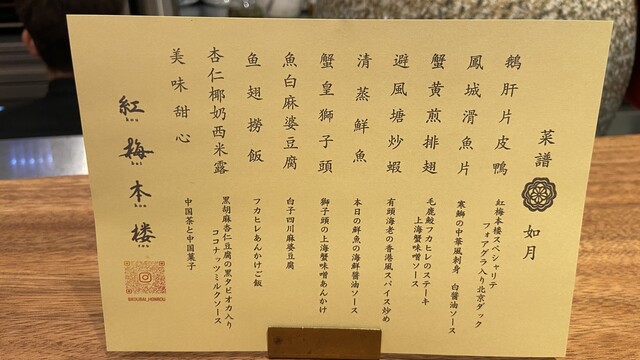 菜譜
如月
鵝肝片皮鴨
紅梅本楼スペシャリテ
フォアグラ入り北京ダック
鳳城滑魚片
寒鰤の中華風刺身 白醤油ソース
蟹黄煎排翅
毛鹿鮫フカヒレのステーキ
上海蟹味噌ソース
避風塘炒蝦
有頭海老の香港風スパイス炒め
清蒸鮮魚
本日の鮮魚の海鮮醤油ソース
蟹皇獅子頭
獅子頭の上海蟹味噌あんかけ
魚白麻婆豆腐
白子四川麻婆豆腐
鱼翅撈飯
フカヒレあんかけご飯
杏仁椰奶西米露
黒胡麻杏仁豆腐の黒タピオカ入り
ココナッツミルクソース
美味甜心
中国茶と中国菓子
紅梅本楼
@KOUBAI_HONROU